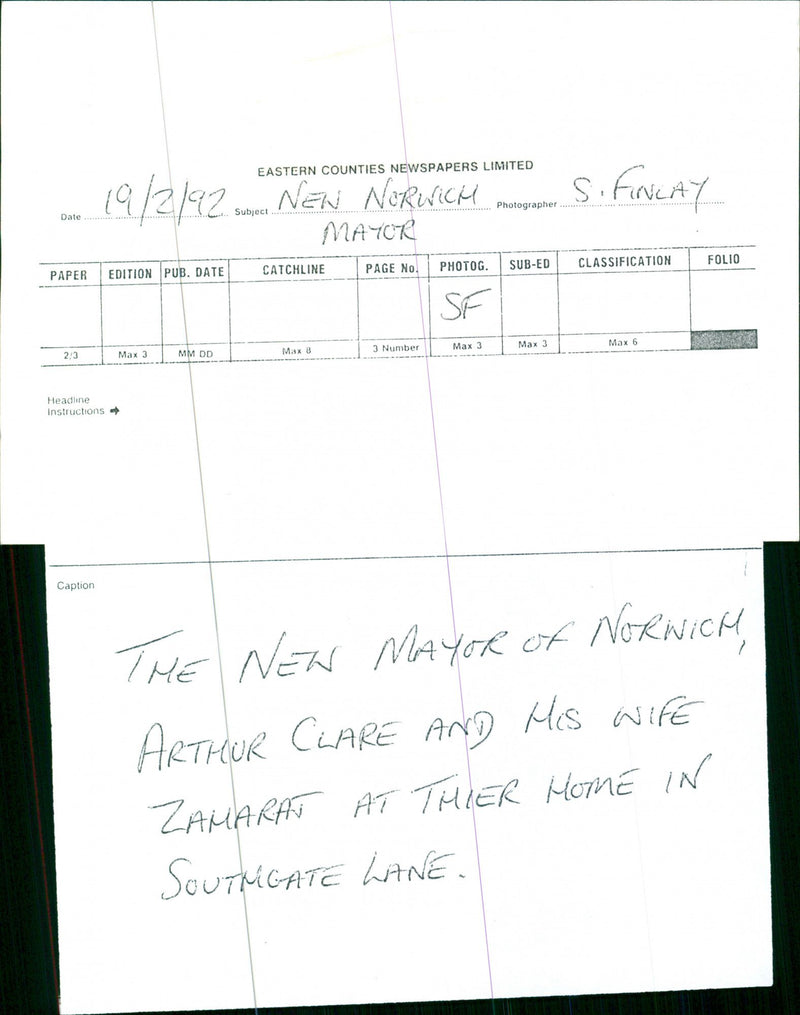 EASTERN COUNTIES NEWSPAPERS LIMITED
Date 19/2/92 Subject NEW NORWICH MAYOR Photographer S. FINLAY
PAPER EDITION PUB. DATE CATCHLINE PAGE No. PHOTOG. SUB-ED CLASSIFICATION FOLIO
SF
2/3 Max 3 MM DD Max 8 3 Number Max 3 Max 3 Max 6
Headline
Instructions →
Caption
THE NEW MAYOR OF NORWICH,
ARTHUR CLARE AND HIS WIFE
ZAHARAT AT THIER HOME IN
SOUTHGATE LANE.